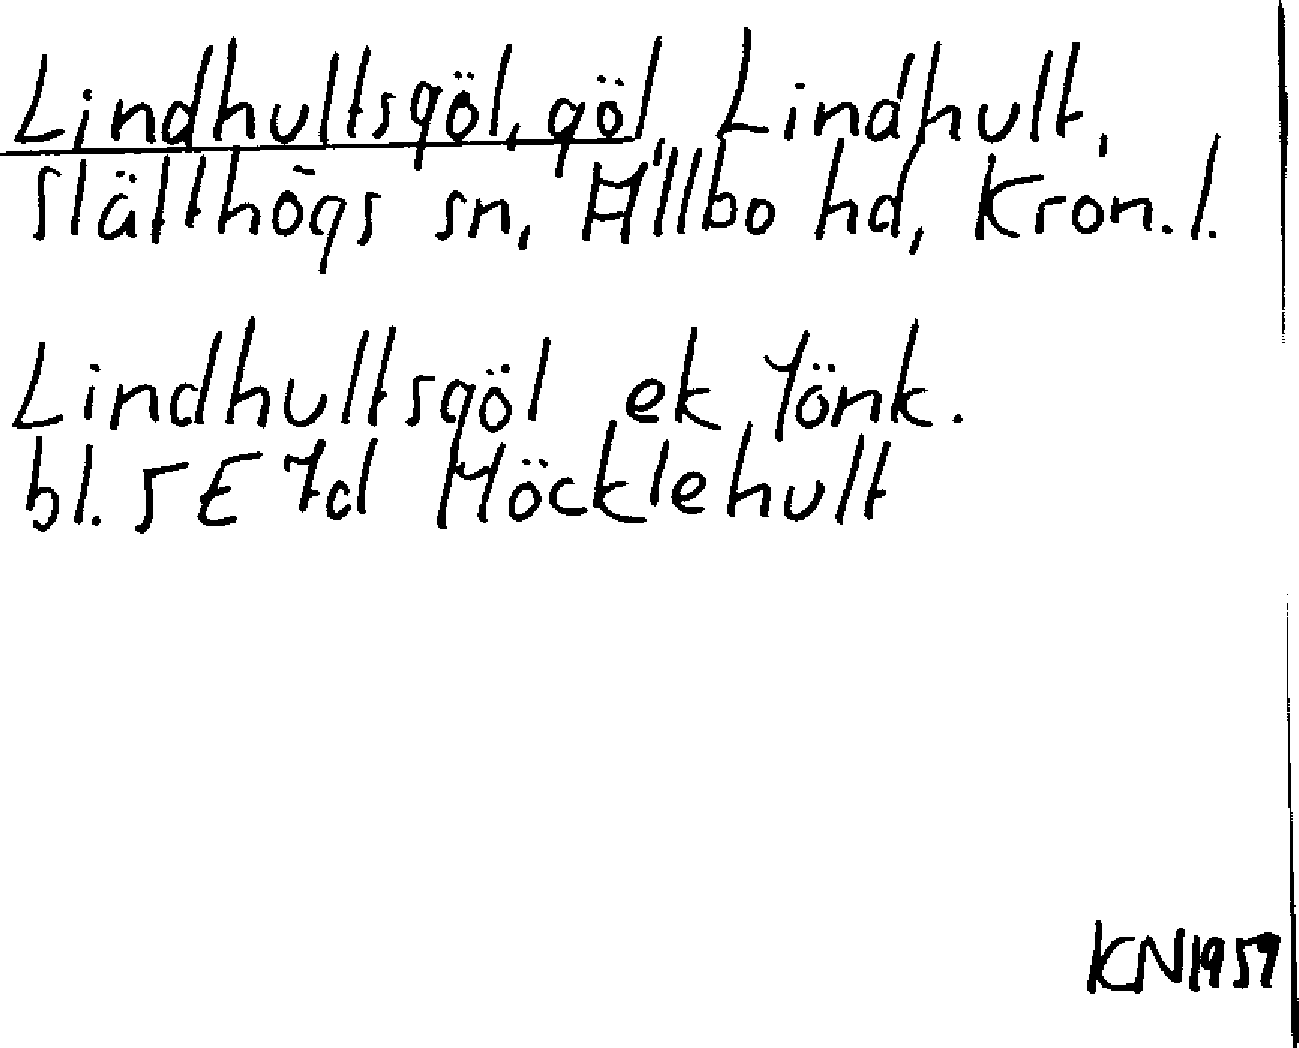 Lindhultsgöl, göl, Lindhult,
Slätthögs sn, Allbo hd, Kron. l.
Lindhultsgöl ek Jönk.
bl. 5 E 7d Möcklehult
KN 1957